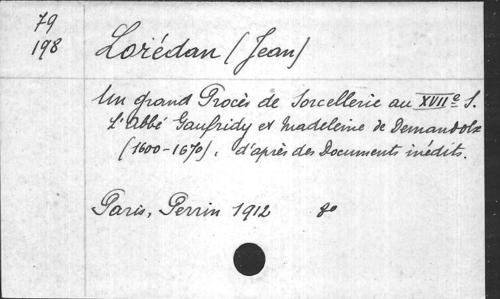 79
198
Lorédan (Jean)
Un grand Procès de Sorcellerie au XVIIe S.
L'Abbé Gaufridy et Madeleine de Demandolx
(1600-1670), d'après des Documents inédits.
Paris, Perrin 1912 8o